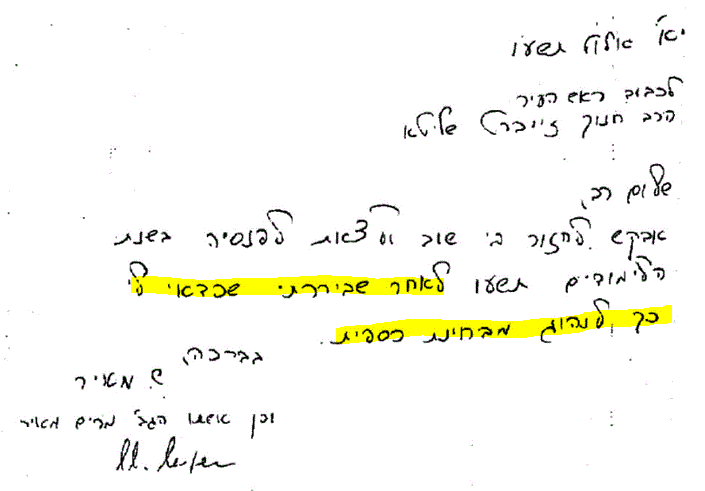 יא' אלול תשע"ו
לכבוד ראש העיר
הרב חנוך זייברט שליט"א
שלום רב,
אבקש לחזור בי שוב ולצאת לפנסיה בשנת
הלימודים תשע"ו לאחר שביררתי שכדאי לי
כך לנהוג מבחינת כספית.
בברכה,
מאיר
וכן אשתו הגב' מרים מאיר